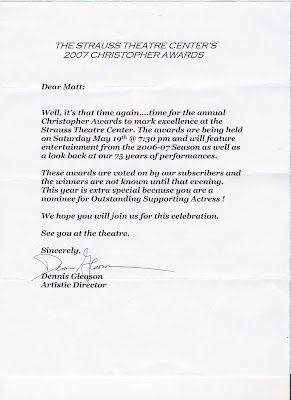 THE STRAUSS THEATRE CENTER'S
2007 CHRISTOPHER AWARDS
Dear Matt:
Well, it's that time again....time for the annual
Christopher Awards to mark excellence at the
Strauss Theatre Center. The awards are being held
on Saturday May 19th @ 7:30 pm and will feature
entertainment from the 2006-07 Season as well as
a look back at our 75 years of performances.
These awards are voted on by our subscribers and
the winners are not known until that evening.
This year is extra special because you are a
nominee for Outstanding Supporting Actress !
We hope you will join us for this celebration.
See you at the theatre.
Sincerely,
Dennis Gleason
Dennis Gleason
Artistic Director